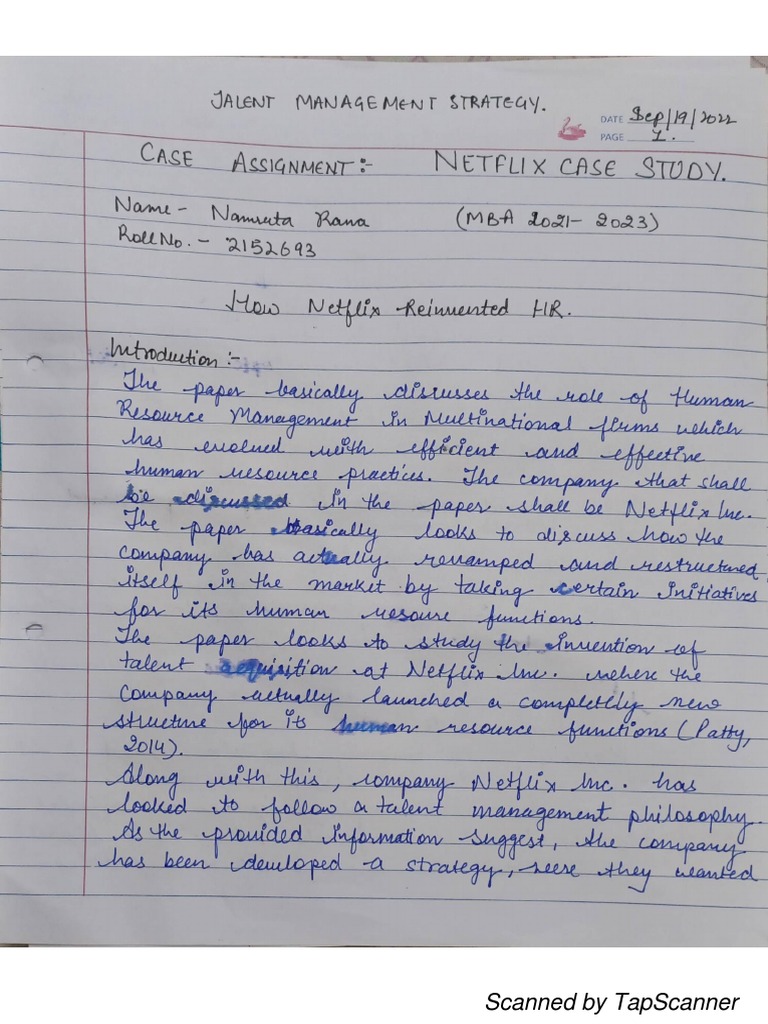 TALENT MANAGEMENT STRATEGY.
DATE Sep/19/2022
PAGE 1.
CASE ASSIGNMENT:- NETFLIX CASE STUDY.
Name - Namrata Rana (MBA 2021- 2023)
Roll No. - 2152693
How Netflix Reinvented HR.
Introduction :-
The paper basically discusses the role of Human
Resource Management in Multinational firms which
has evolved with efficient and effective
human resource practices. The company that shall
be discussed in the paper shall be Netflix Inc.
The paper basically looks to discuss how the
company has actually revamped and restructured
itself in the market by taking certain initiatives
for its human resoure functions.
The paper looks to study the invention of
talent acquisition at Netflix Inc. where the
company actually launched a completly new
structure for its human resource functions (Patty,
2014).
Along with this, company Netflix Inc. has
looked to follow a talent management philosophy.
As the provided information suggest, the company
has been developed a strategy, were they wanted
Scanned by TapScanner